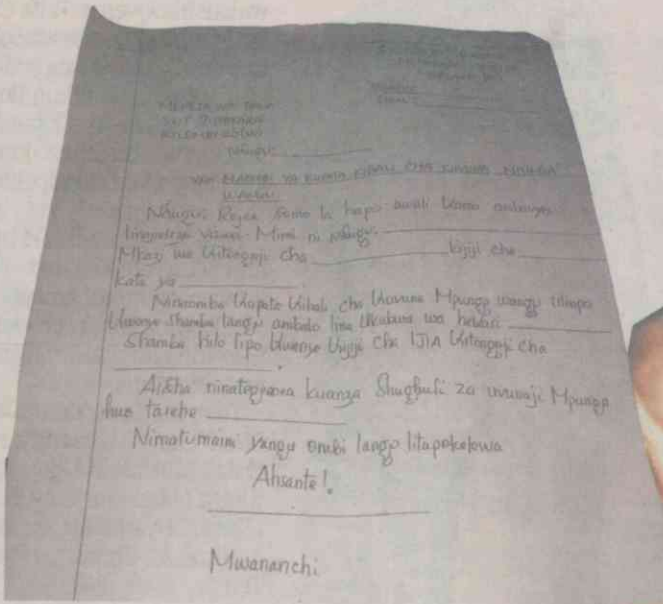 MENEJA WA
NDUGU: ____________
YAH: MAOMBI YA KUPATA KIBALI CHA KUVUNA MPUNGA
WANGU.
Ndugu, Rejea somo la hapo awali kama
Mimi ni Ndugu. ____________
Mkazi wa Kitongoji cha ____________ kijiji cha ____________
kata ya ____________.
Ninaomba kupata kibali cha kuvuna Mpunga wangu uliopo
kwenye shamba langu ambalo lina ukubwa wa hekari ____________
Shamba hilo lipo kwenye kijiji cha IJIA kitongoji cha
____________.
Aidha ninategemea kuanza Shughuli za uvunaji Mpunga
huo tarehe ____________
Nimatumaini yangu ombi langu litapokelewa
Ahsante!.
Mwananchi